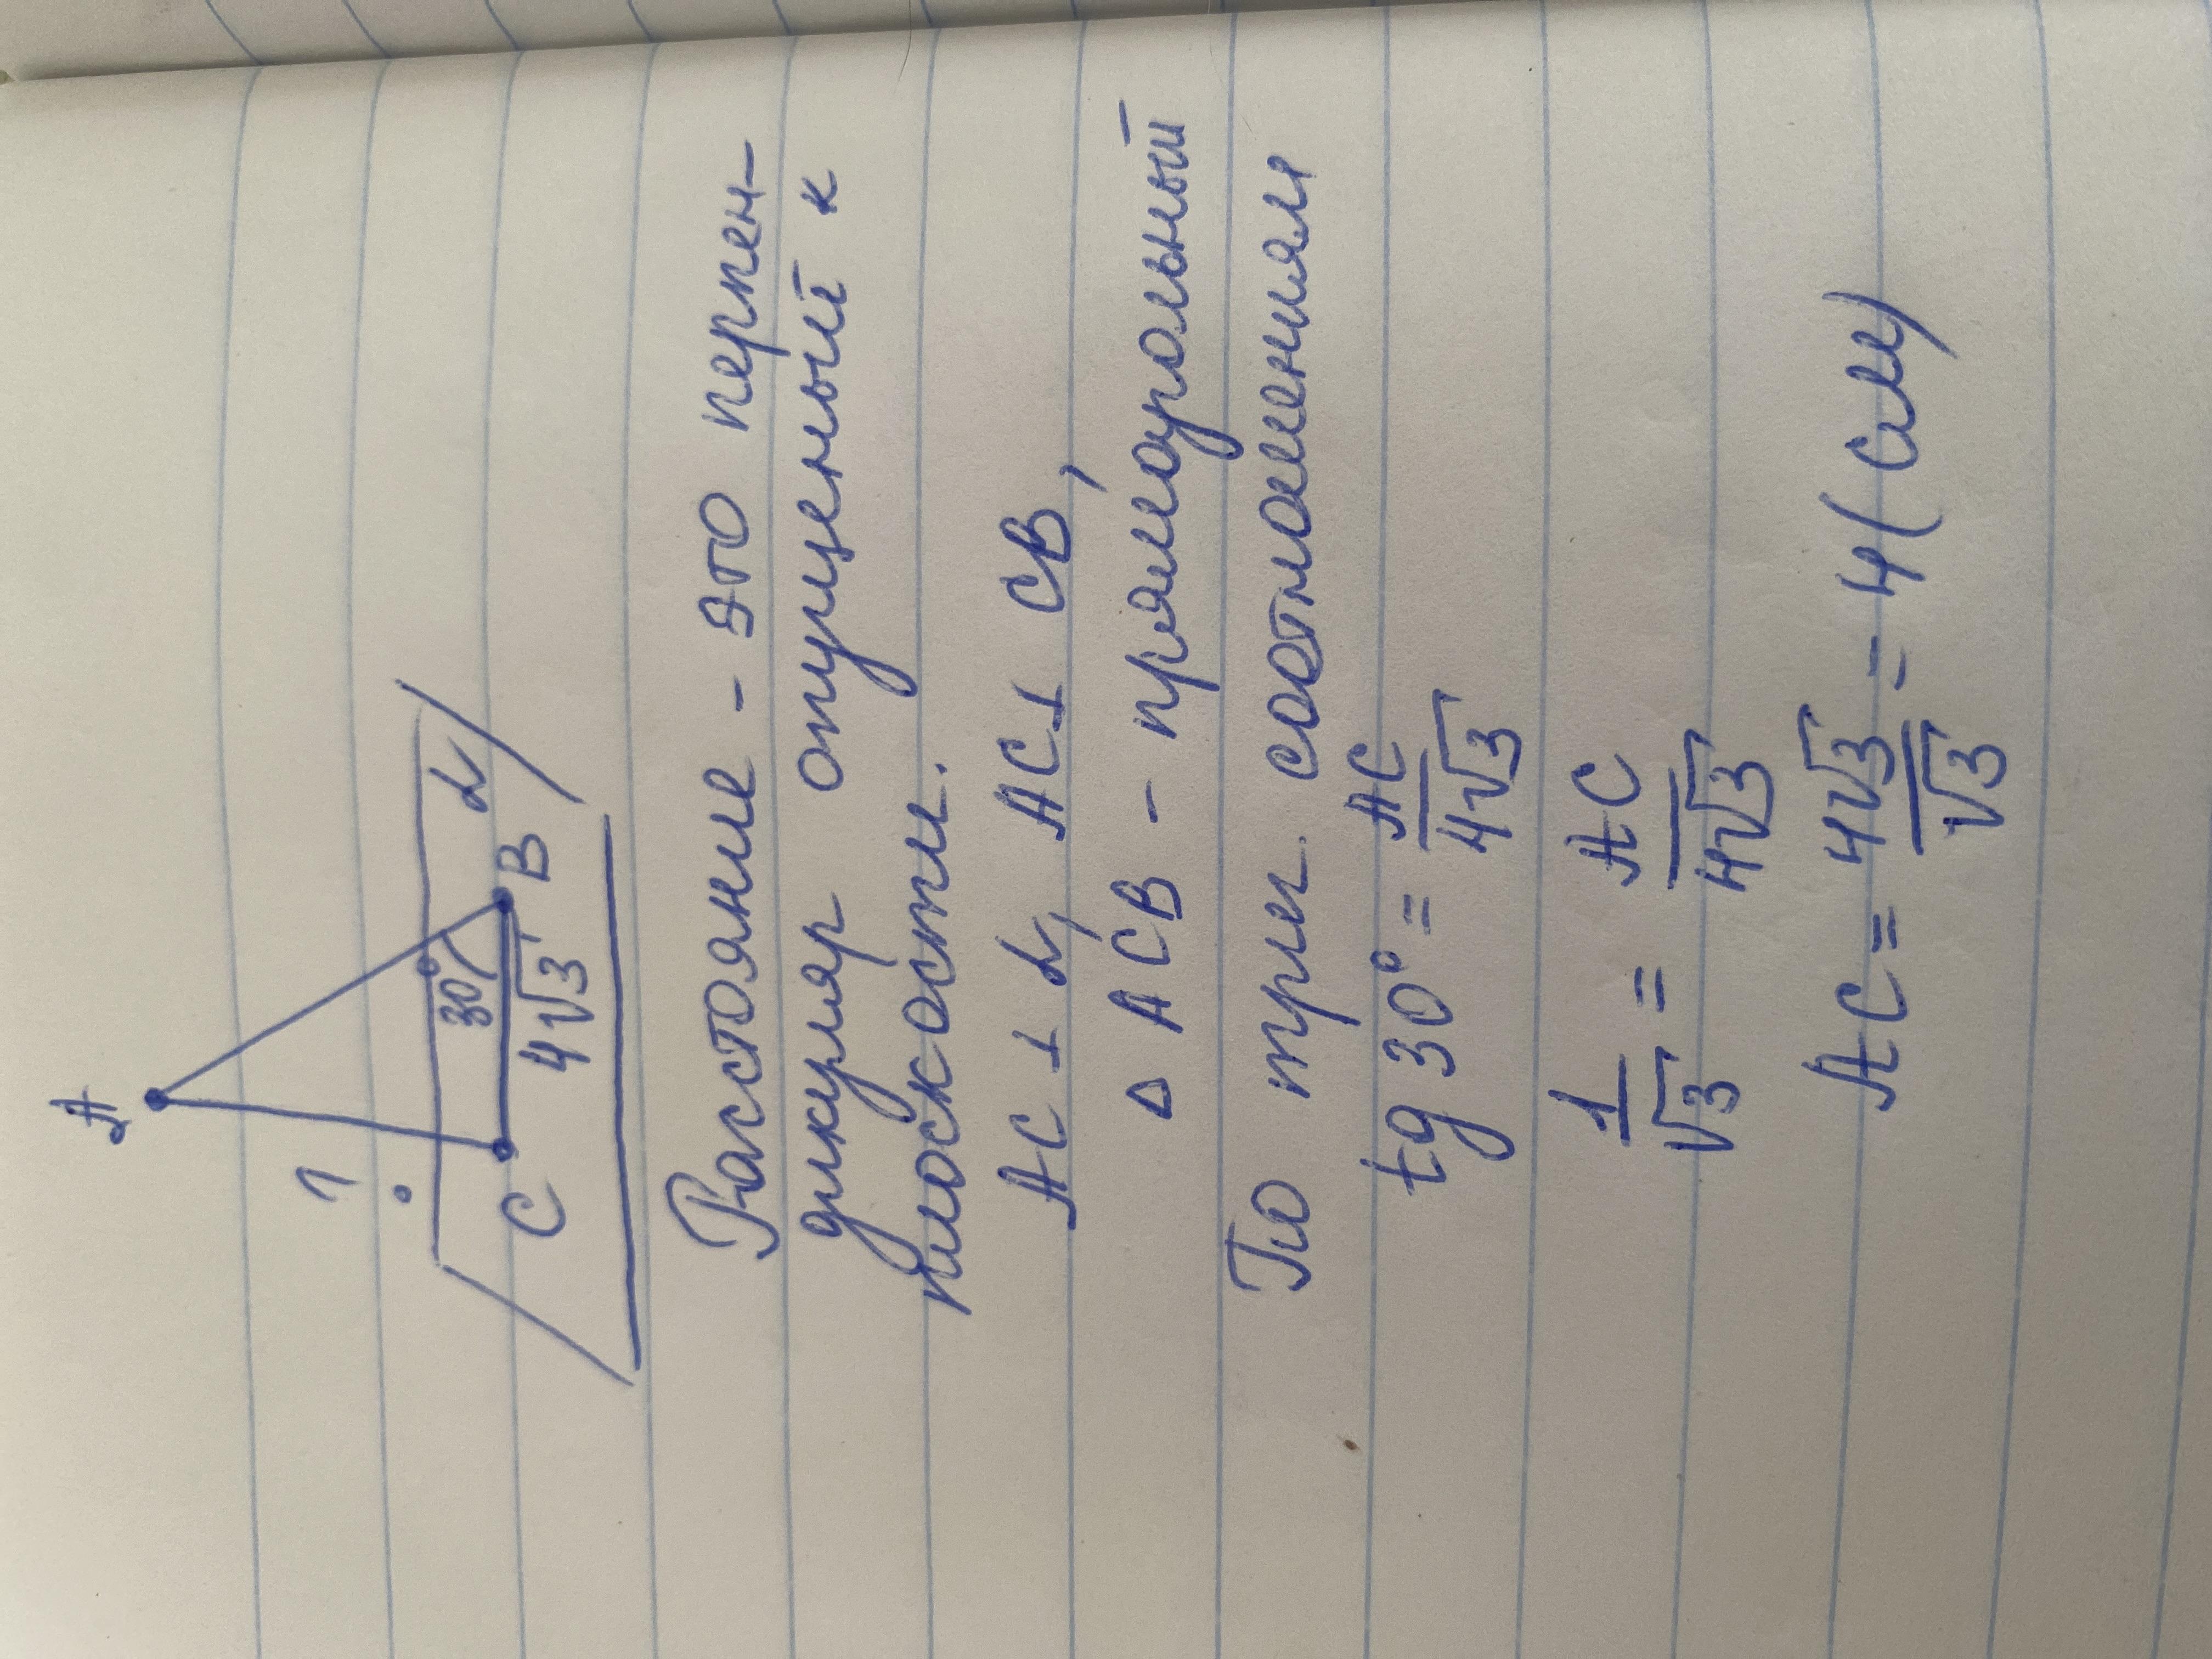 A
?
30°
C
B
α
4√3
Расстояние - это перпен-
дикуляр опущенный к
плоскости.
AC ⊥ α, AC ⊥ CB,
△ ACB - прямоугольный
По триг. соотношениям
tg 30° = AC/4√3
1/√3 = AC/4√3
AC = 4√3/√3 = 4(см)